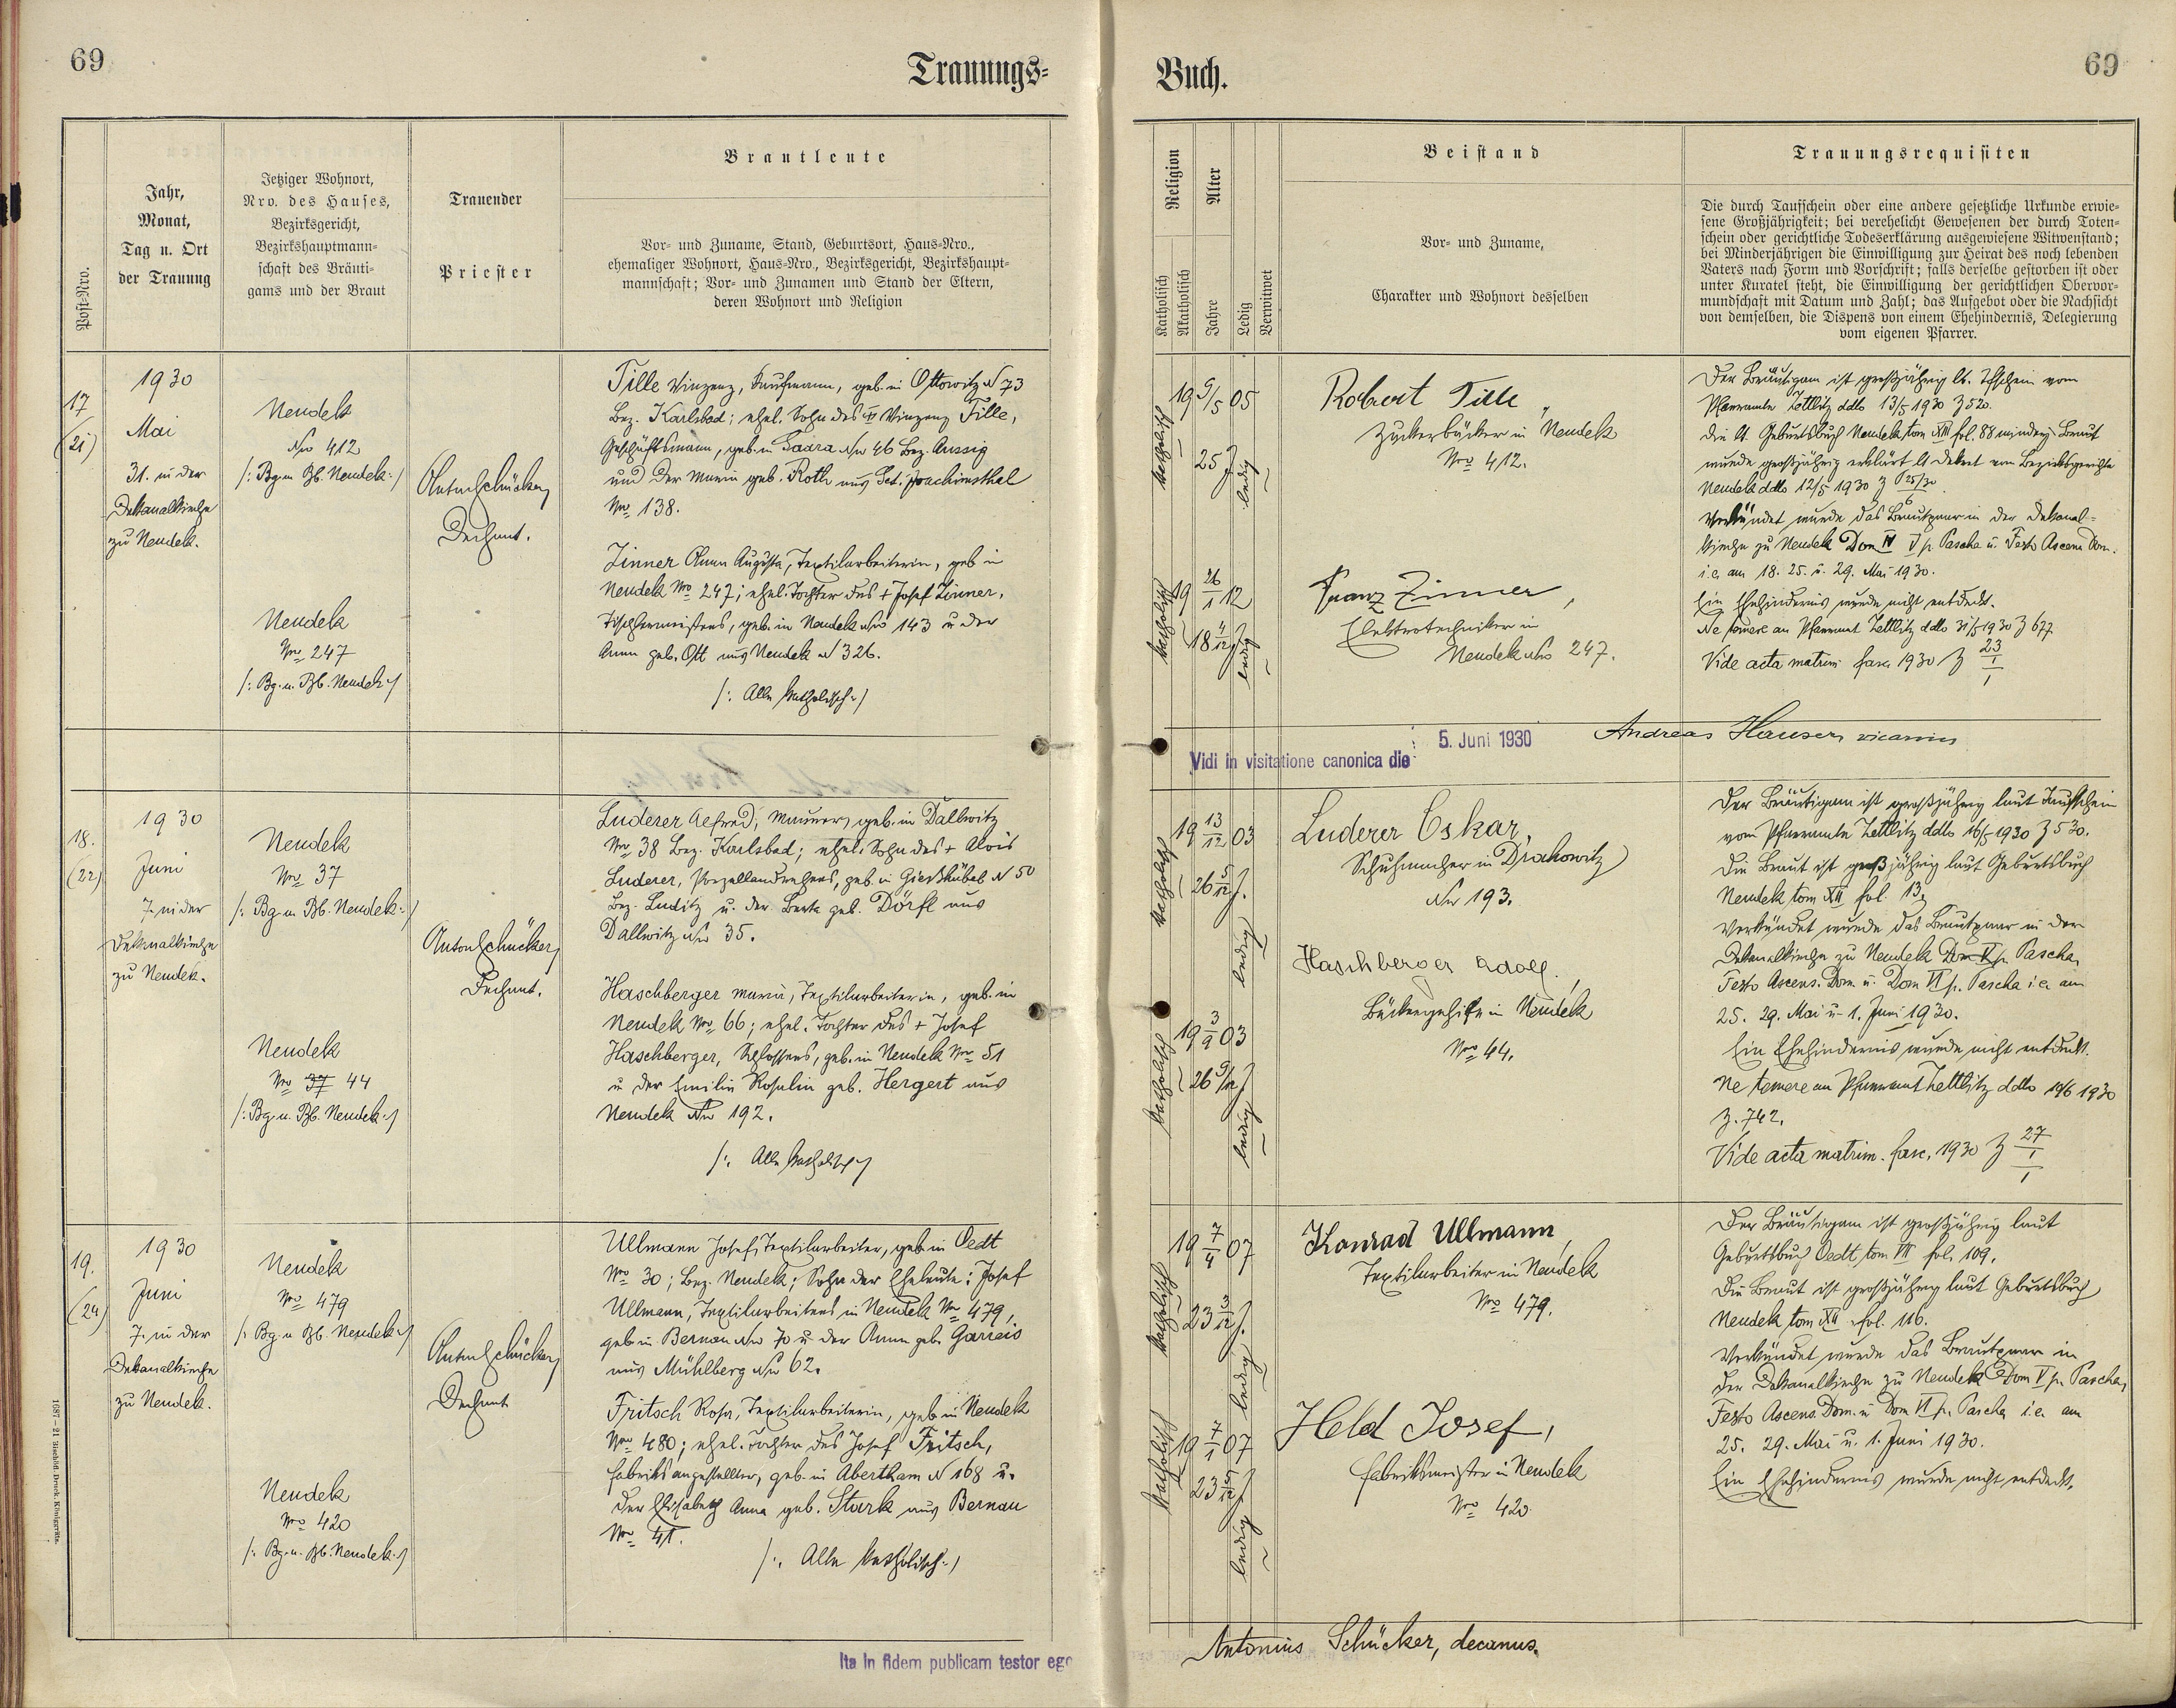 69
Trauungs-
Buch.
69
Post-Nro.
Jahr,
Monat,
Tag u. Ort
der Trauung
Jetziger Wohnort,
Nro. des Hauses,
Bezirksgericht,
Bezirkshauptmann-
schaft des Bräuti-
gams und der Braut
Trauender
Priester
Brautleute
Vor- und Zuname, Stand, Geburtsort, Haus-Nro.,
ehemaliger Wohnort, Haus-Nro., Bezirksgericht, Bezirkshaupt-
mannschaft; Vor- und Zunamen und Stand der Eltern,
deren Wohnort und Religion
Religion
Katholisch
Akatholisch
Alter
Jahre
Ledig
Verwitwet
Beistand
Vor- und Zuname,
Charakter und Wohnort desselben
Trauungsrequisiten
Die durch Taufschein oder eine andere gesetzliche Urkunde erwie-
sene Großjährigkeit; bei verehelicht Gewesenen der durch Toten-
schein oder gerichtliche Todeserklärung ausgewiesene Witwenstand;
bei Minderjährigen die Einwilligung zur Heirat des noch lebenden
Vaters nach Form und Vorschrift; falls derselbe gestorben ist oder
unter Kuratel steht, die Einwilligung der gerichtlichen Obervor-
mundschaft mit Datum und Zahl; das Aufgebot oder die Nachsicht
von demselben, die Dispens von einem Ehehindernis, Delegierung
vom eigenen Pfarrer.
17
(21)
1930
Mai
31. in der
Dekanalkirche
zu Neudek.
Neudek
Nro 412
/: Bg. u. Bb. Neudek :/
Neudek
Nro 247
/: Bg. u. Bb. Neudek :/
Anton Schücker,
Dechant.
Tille Vinzenz, Kaufmann, geb. in Ottowitz N 73
Bez. Karlsbad; ehel. Sohn des Vinzenz Tille,
Geschäftsmann, geb. in Saara Nro 46 Bez. Aussig
und der Maria geb. Roth aus Set. Joachimsthal
Nro 138.
Zinner Anna Augusta, Textilarbeiterin, geb. in
Neudek Nro 247; ehel. Tochter des + Josef Zinner,
Tischlermeisters, geb. in Neudek Nro 143 u. der
Anna geb. Ott aus Neudek N 326.
/: Alle katholisch :/
katholisch
19 9/5 05
25 J
ledig
Robert Tille,
Zuckerbäcker in Neudek
Nro 412.
katholisch
19 26/1 12
18 4/12 J.
ledig
Franz Zinner,
Elektrotechniker in
Neudek Nro 247.
Der Bräutigam ist großjährig lt. Tfschein vom
Pfarramte Zettlitz ddto 13/5 1930 Z 520.
Die lt. Geburtsbuch Neudek tom XIII fol. 88 minderj. Braut
wurde großjährig erklärt lt Dekret vom Bezirksgerichte
Neudek ddto 12/5 1930 Z P 25/30
6
Verkündet wurde das Brautpaar in der Dekanal-
kirche zu Neudek Dom IV V p. Pascha u. Festo Ascens Dom.
i. e. am 18. 25. u. 29. Mai 1930.
Ein Ehehindernis wurde nicht entdeckt.
Ne temere an Pfarramt Zettlitz ddto 31/5 1930 Z 677
Vide acta matrim fasc. 1930 Z 23/1
Vidi in visitatione canonica die 5. Juni 1930
Andreas Hauser, vicarius
18.
(22)
1930
Juni
7. in der
Dekanalkirche
zu Neudek.
Neudek
Nro 37
/: Bg. u. Bb. Neudek :/
Neudek
Nro 37 44
/: Bg. u. Bb. Neudek :/
Anton Schücker,
Dechant.
Luderer Alfred, Maurer, geb. in Dallwitz
Nro 38 Bez. Karlsbad; ehel. Sohn des + Alois
Luderer, Porzellandrehers, geb. in Gießhübel N 50
Bez. Luditz u. der Berta geb. Dörfl aus
Dallwitz Nro 35.
Haschberger Maria, Textilarbeiterin, geb. in
Neudek Nro 66; ehel. Tochter des + Josef
Haschberger, Schlossers, geb. in Neudek Nro 51
u. der Emilie Rosalia geb. Hergert aus
Neudek Nro 192.
/: Alle katholisch :/
katholisch
19 13/12 03
26 5/12 J.
ledig
Luderer Oskar,
Schuhmacher in Drahowitz
Nro 193.
katholisch
19 3/9 03
26 9/12 J
ledig
Haschberger Adolf.
Bäckergehilfe in Neudek
Nro 44.
Der Bräutigam ist großjährig laut Taufschein
vom Pfarramte Zettlitz ddto 16/5 1930 Z 530.
Die Braut ist großjährig laut Geburtsbuch
Neudek tom XII fol. 13.
Verkündet wurde das Brautpaar in der
Dekanalkirche zu Neudek Dom V p. Pascha,
Festo Ascens. Dom. u. Dom VI p. Pascha i. e. am
25. 29. Mai u. 1. Juni 1930.
Ein Ehehindernis wurde nicht entdeckt.
Ne temere an Pfarramt Zettlitz ddto 10/6 1930
Z. 742.
Vide acta matrim. fasc. 1930 Z 27/1
19.
(24)
1930
Juni
7. in der
Dekanalkirche
zu Neudek.
Neudek
Nro 479
/: Bg. u. Bb. Neudek :/
Neudek
Nro 420
/: Bg. u. Bb. Neudek :/
Anton Schücker,
Dechant
Ullmann Josef, Textilarbeiter, geb. in Oedt
Nro 30; Bez. Neudek; Sohn der Eheleute: Josef
Ullmann, Textilarbeiters in Neudek Nro 479,
geb. in Bernau Nro 70 u. der Anna geb. Garreis
aus Mühlberg Nro 62.
Fritsch Rosa, Textilarbeiterin, geb. in Neudek
Nro 480; ehel. Tochter des Josef Fritsch,
Fabriksangestellter, geb. in Abertham N 168 u.
der Elisabeth Anna geb. Stark aus Bernau
Nro 41.
/: Alle katholisch :/
katholisch
19 7/4 07
23 3/12 J.
ledig
Konrad Ullmann,
Textilarbeiter in Neudek
Nro 479.
katholisch
19 7/1 07
23 5/12 J
ledig
Held Josef,
Fabriksmeister in Neudek
Nro 420
Der Bräutigam ist großjährig laut
Geburtsbuch Oedt, tom VII fol. 109.
Die Braut ist großjährig laut Geburtsbuch
Neudek tom XII fol. 116.
Verkündet wurde das Brautpaar in
der Dekanalkirche zu Neudek Dom V p. Pascha,
Festo Ascens. Dom. u. Dom VI p. Pascha i. e. am
25. 29. Mai u. 1. Juni 1930.
Ein Ehehindernis wurde nicht entdeckt.
1687-21 Bischöfl. Druck. Königgrätz.
Ita in fidem publicam testor ego
Antonius Schücker, decanus.